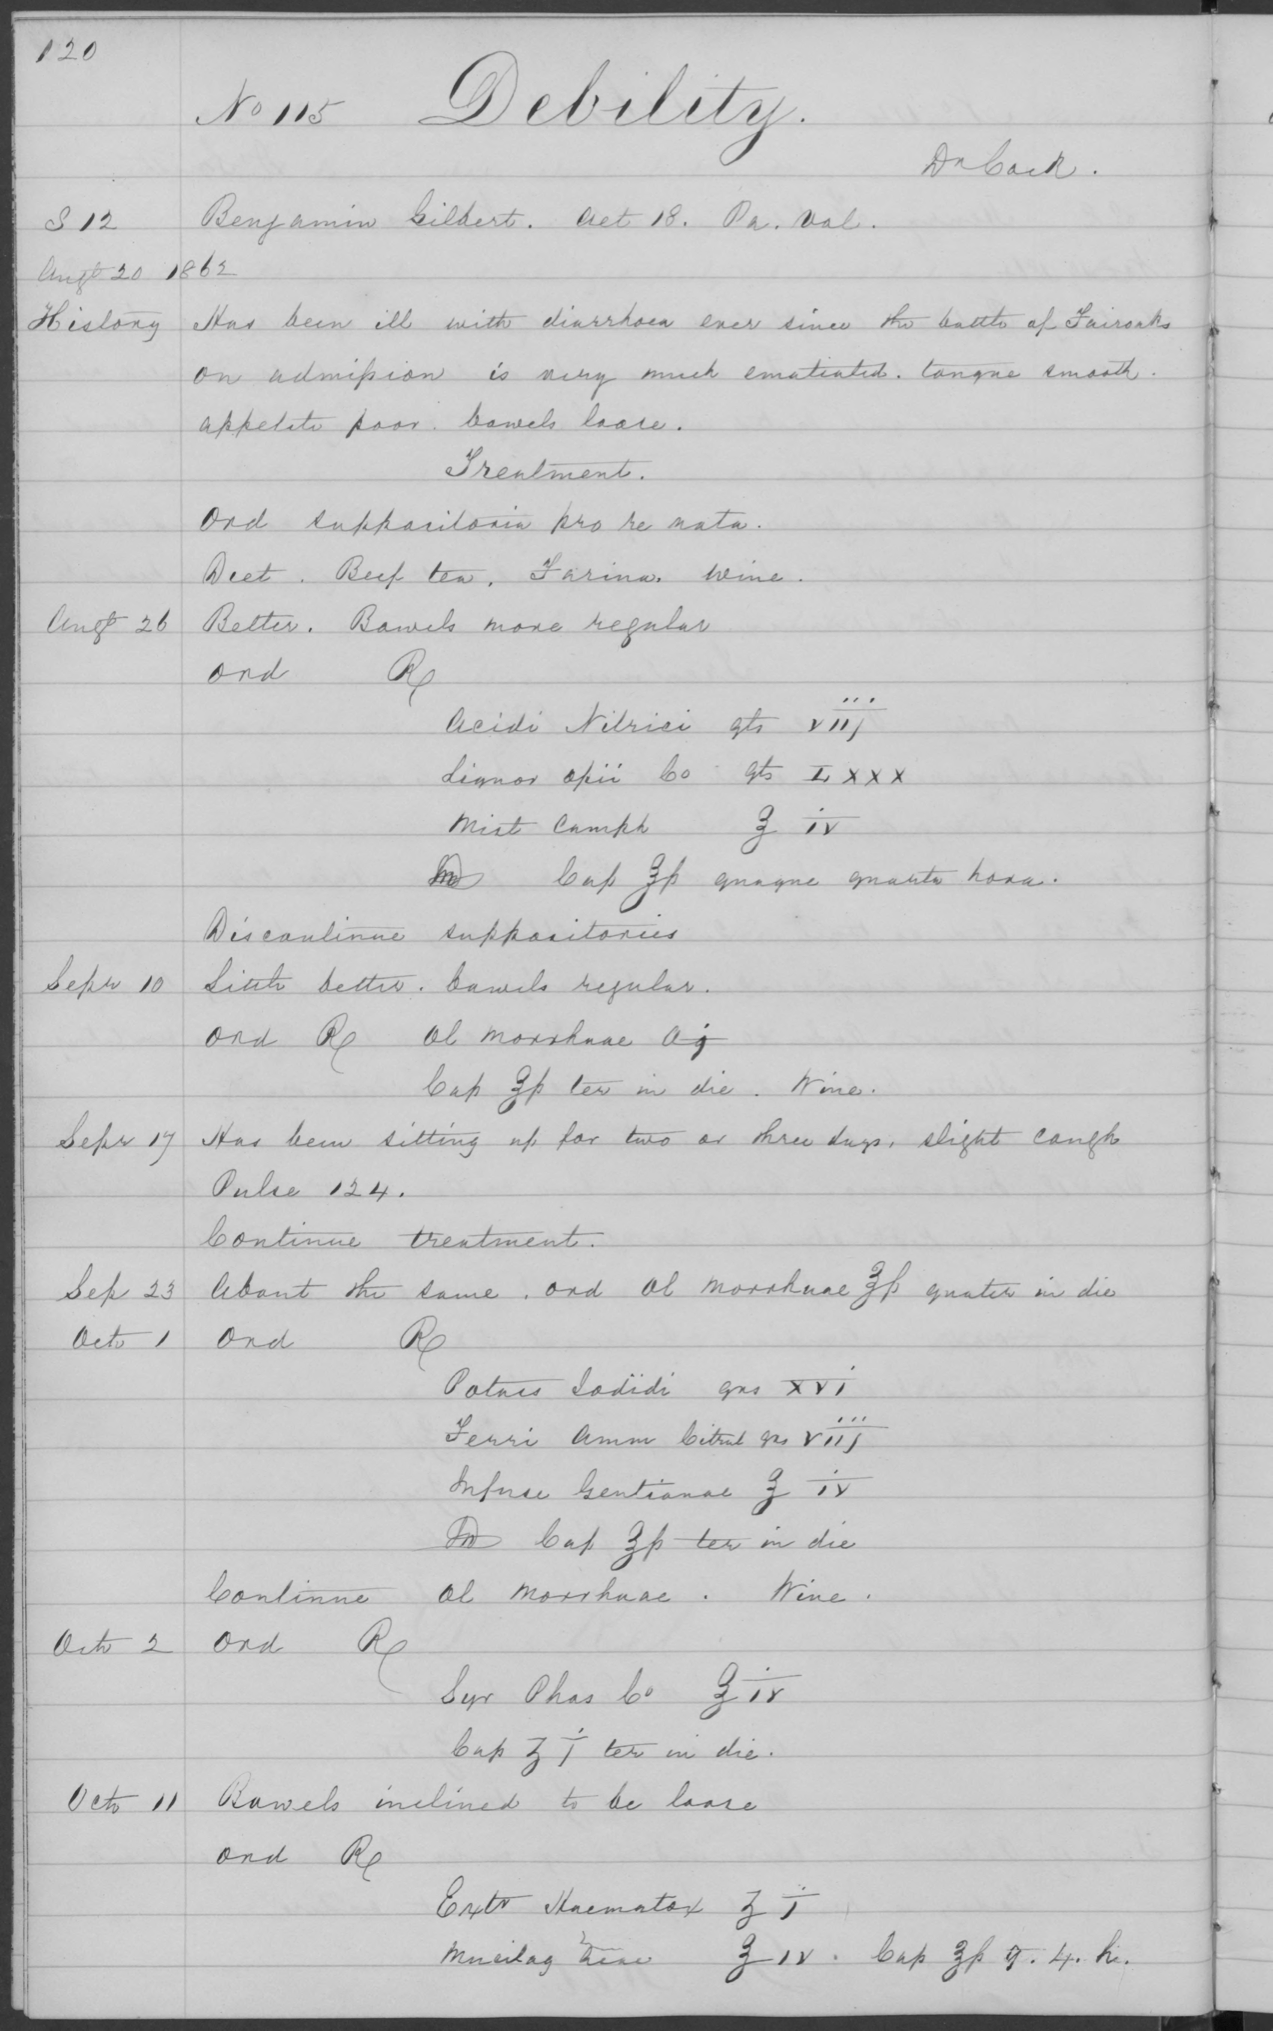 120
No 115 Debility.
Dr Cock.
S 12 Benjamin Gilbert. Aet 18. Pa. Vol.
Augt 20 1862
History Has been ill with diarrhoea ever since the battle of Fairoaks
on admission is very much emaciated. tongue smooth.
appetite poor. bowels loose.
Treatment.
Ord suppositoria pro re nata.
Diet. Beef tea. Farina. Wine.
Augt 26 Better. Bowels more regular
Ord ℞
Acidi Nitrici gts viij
Liquor opii Co gts Lxxx
Mist Camph ℥ iv
M Cap ℥ß quaque quarta hora.
Discontinue suppositories
Sepr 10 Little better. bowels regular.
Ord ℞ Ol Morrhuae Oj
Cap ℥ß ter in die. Wine.
Sepr 17 Has been sitting up for two or three days. slight cough
Pulse 124.
Continue treatment.
Sep 23 About the same. Ord Ol Morrhuae ℥ß quater in die
Octr 1 Ord ℞
Potass Iodidi grs xvi
Ferri Amm Citrat grs viij
Infuse Gentianae ℥ iv
M Cap ℥ß ter in die
Continue Ol Morrhuae. Wine.
Octr 2 Ord ℞
Syr Phos Co ℥ iv
Cap ʒ j ter in die.
Octr 11 Bowels inclined to be loose
Ord ℞
Extr Haematox ʒ j
Mucilag ℥ iv. Cap ℥ß q. 4. h.